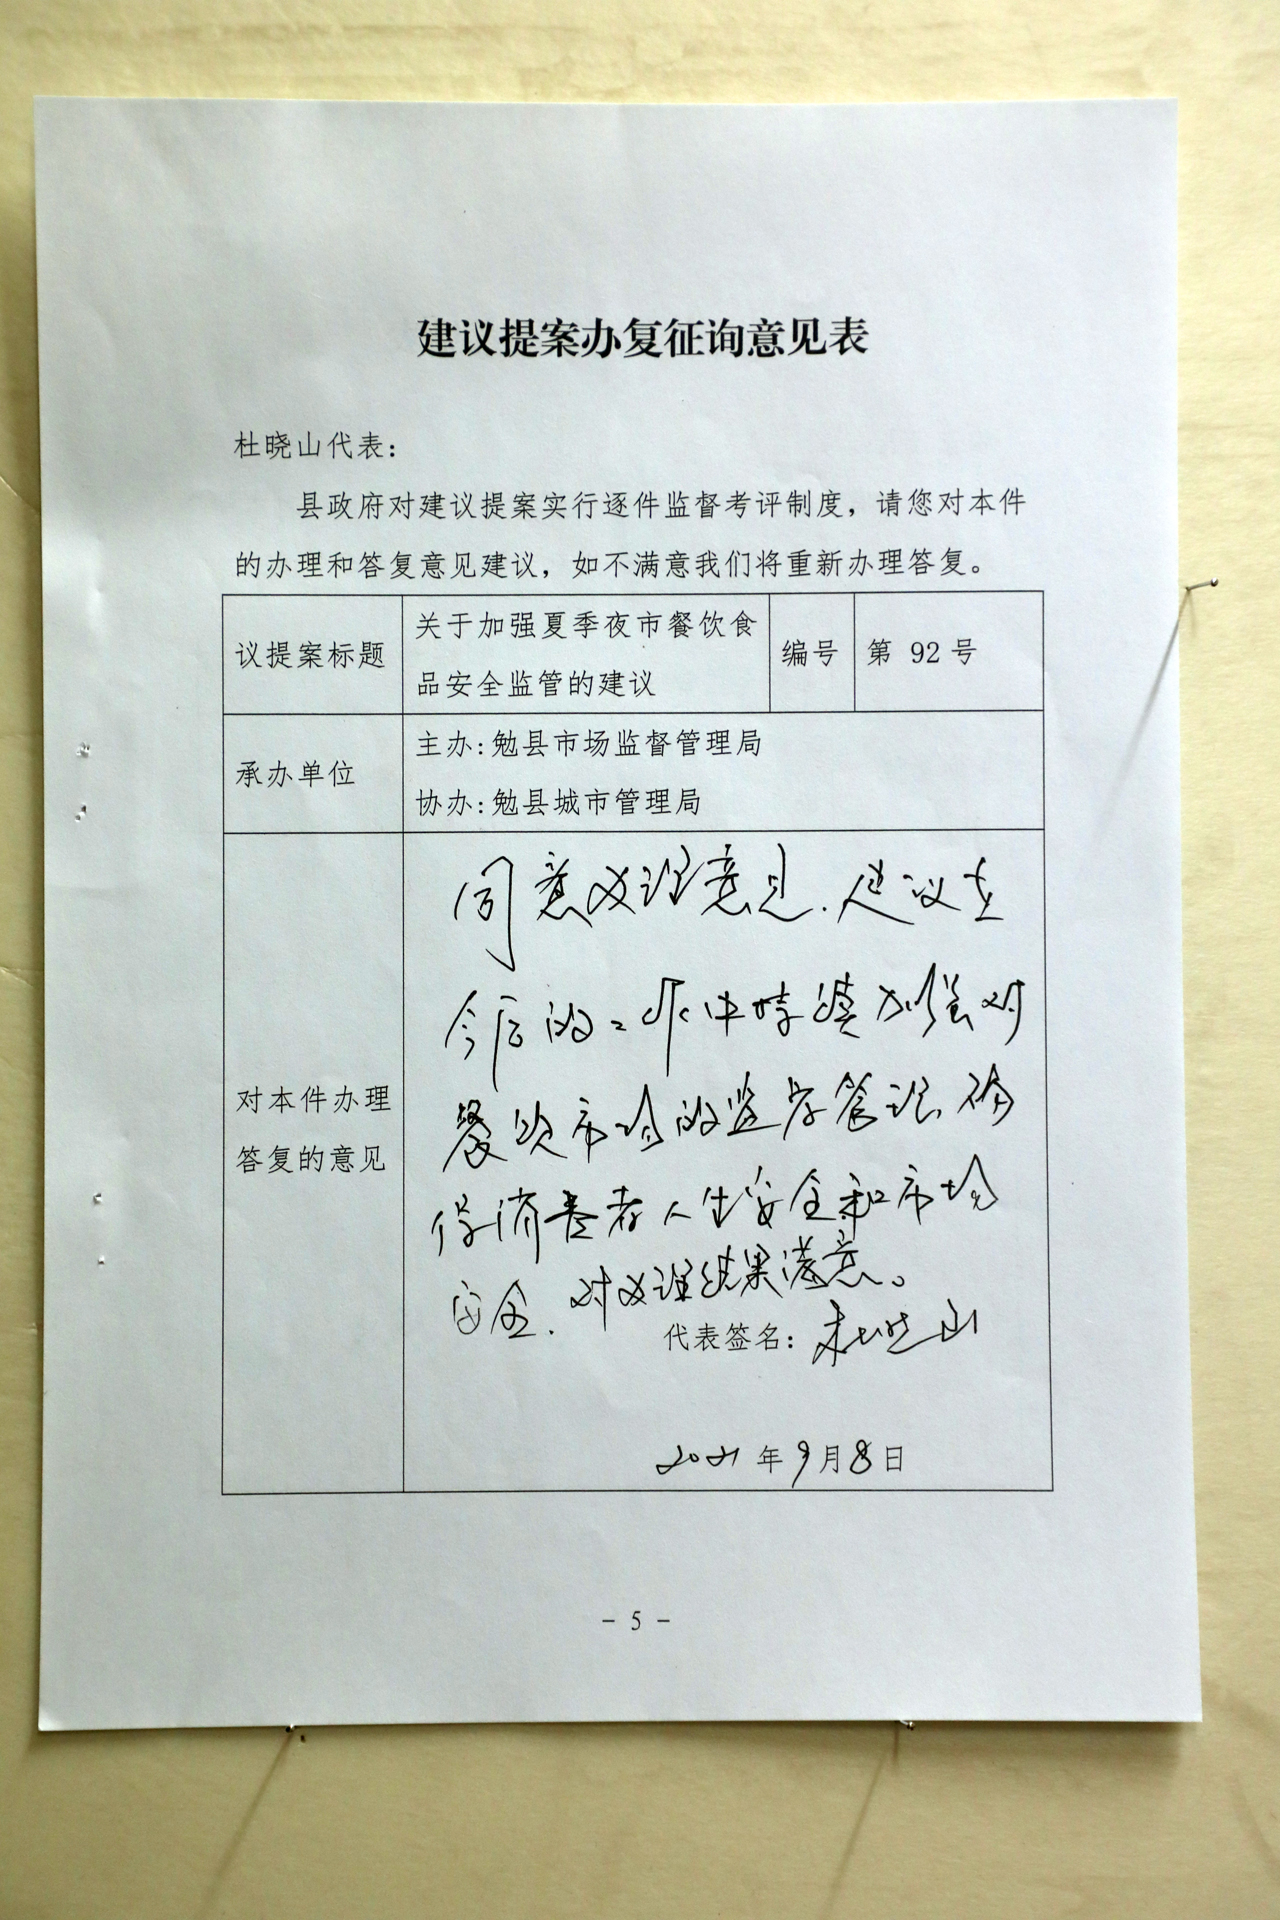 建议提案办复征询意见表
杜晓山代表：
县政府对建议提案实行逐件监督考评制度，请您对本件
的办理和答复意见建议，如不满意我们将重新办理答复。
议提案标题
关于加强夏季夜市餐饮食
品安全监管的建议
编号
第 92 号
承办单位
主办：勉县市场监督管理局
协办：勉县城市管理局
对本件办理
答复的意见
同意办理意见.建议在
今后的工作中持续加强对
餐饮市场的监督管理,确
保消费者人生安全和市场
安全.对办理结果满意。
代表签名：杜晓山
2021年9月8日
- 5 -